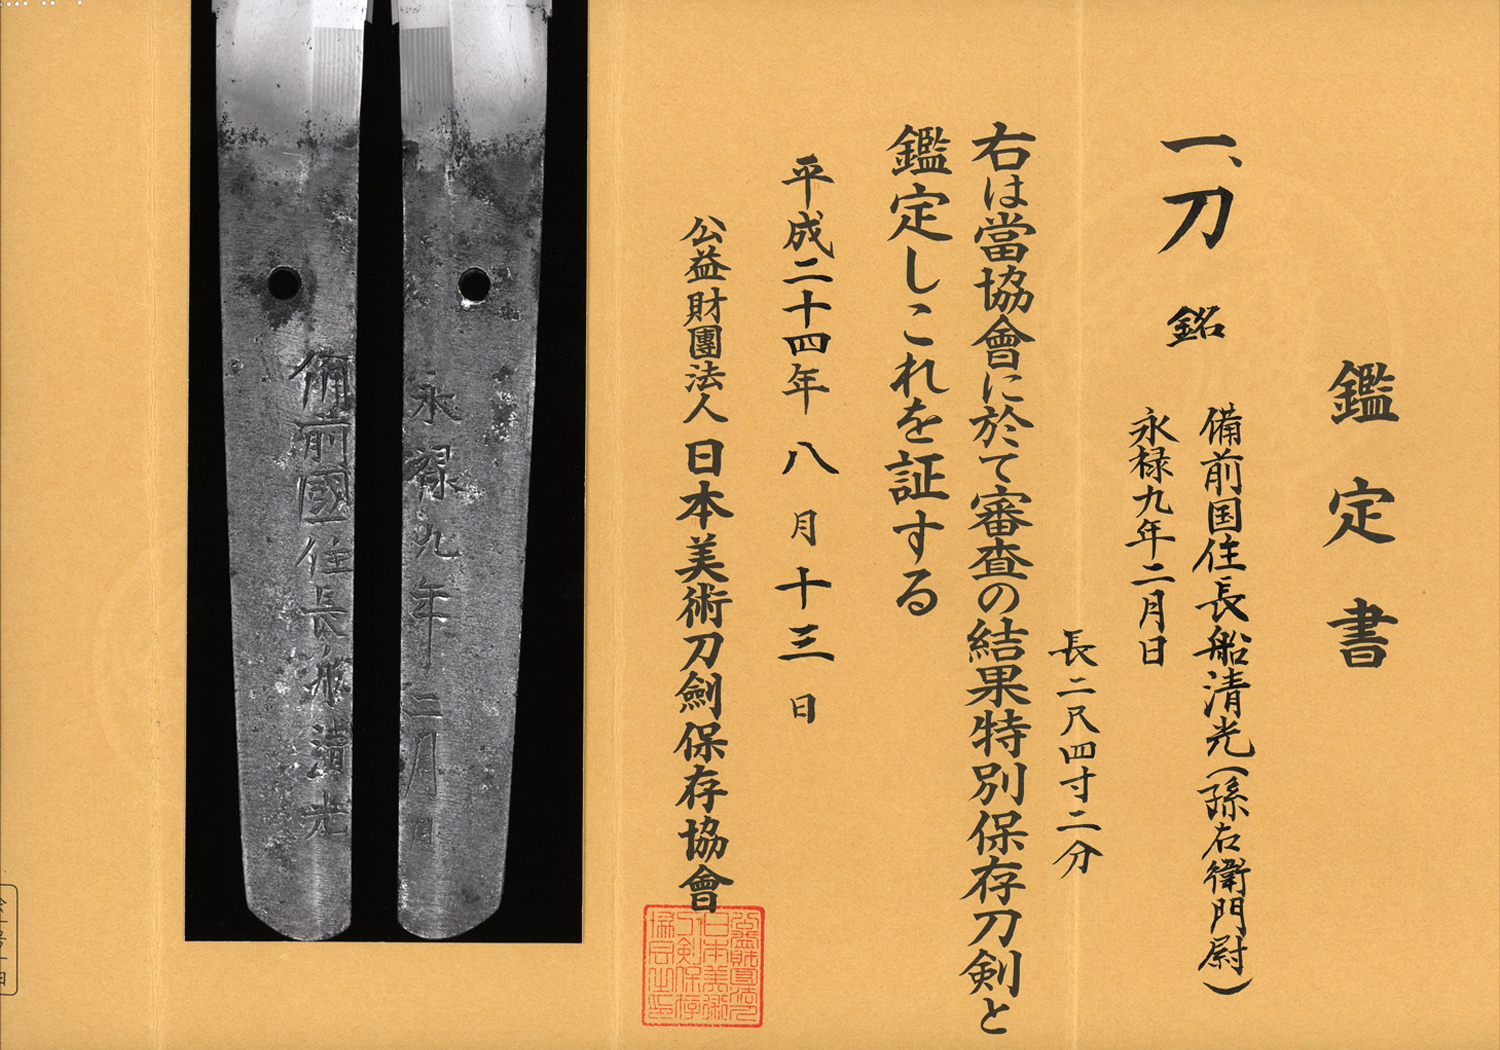 鑑定書
一、刀 銘
備前国住長船清光(孫右衛門尉)
永禄九年二月日
長二尺四寸二分
右は當協會に於て審査の結果特別保存刀剣と
鑑定しこれを証する
平成二十四年 八月十三日
公益財團法人日本美術刀劍保存協會
永禄九年二月日
備前國住長船清光